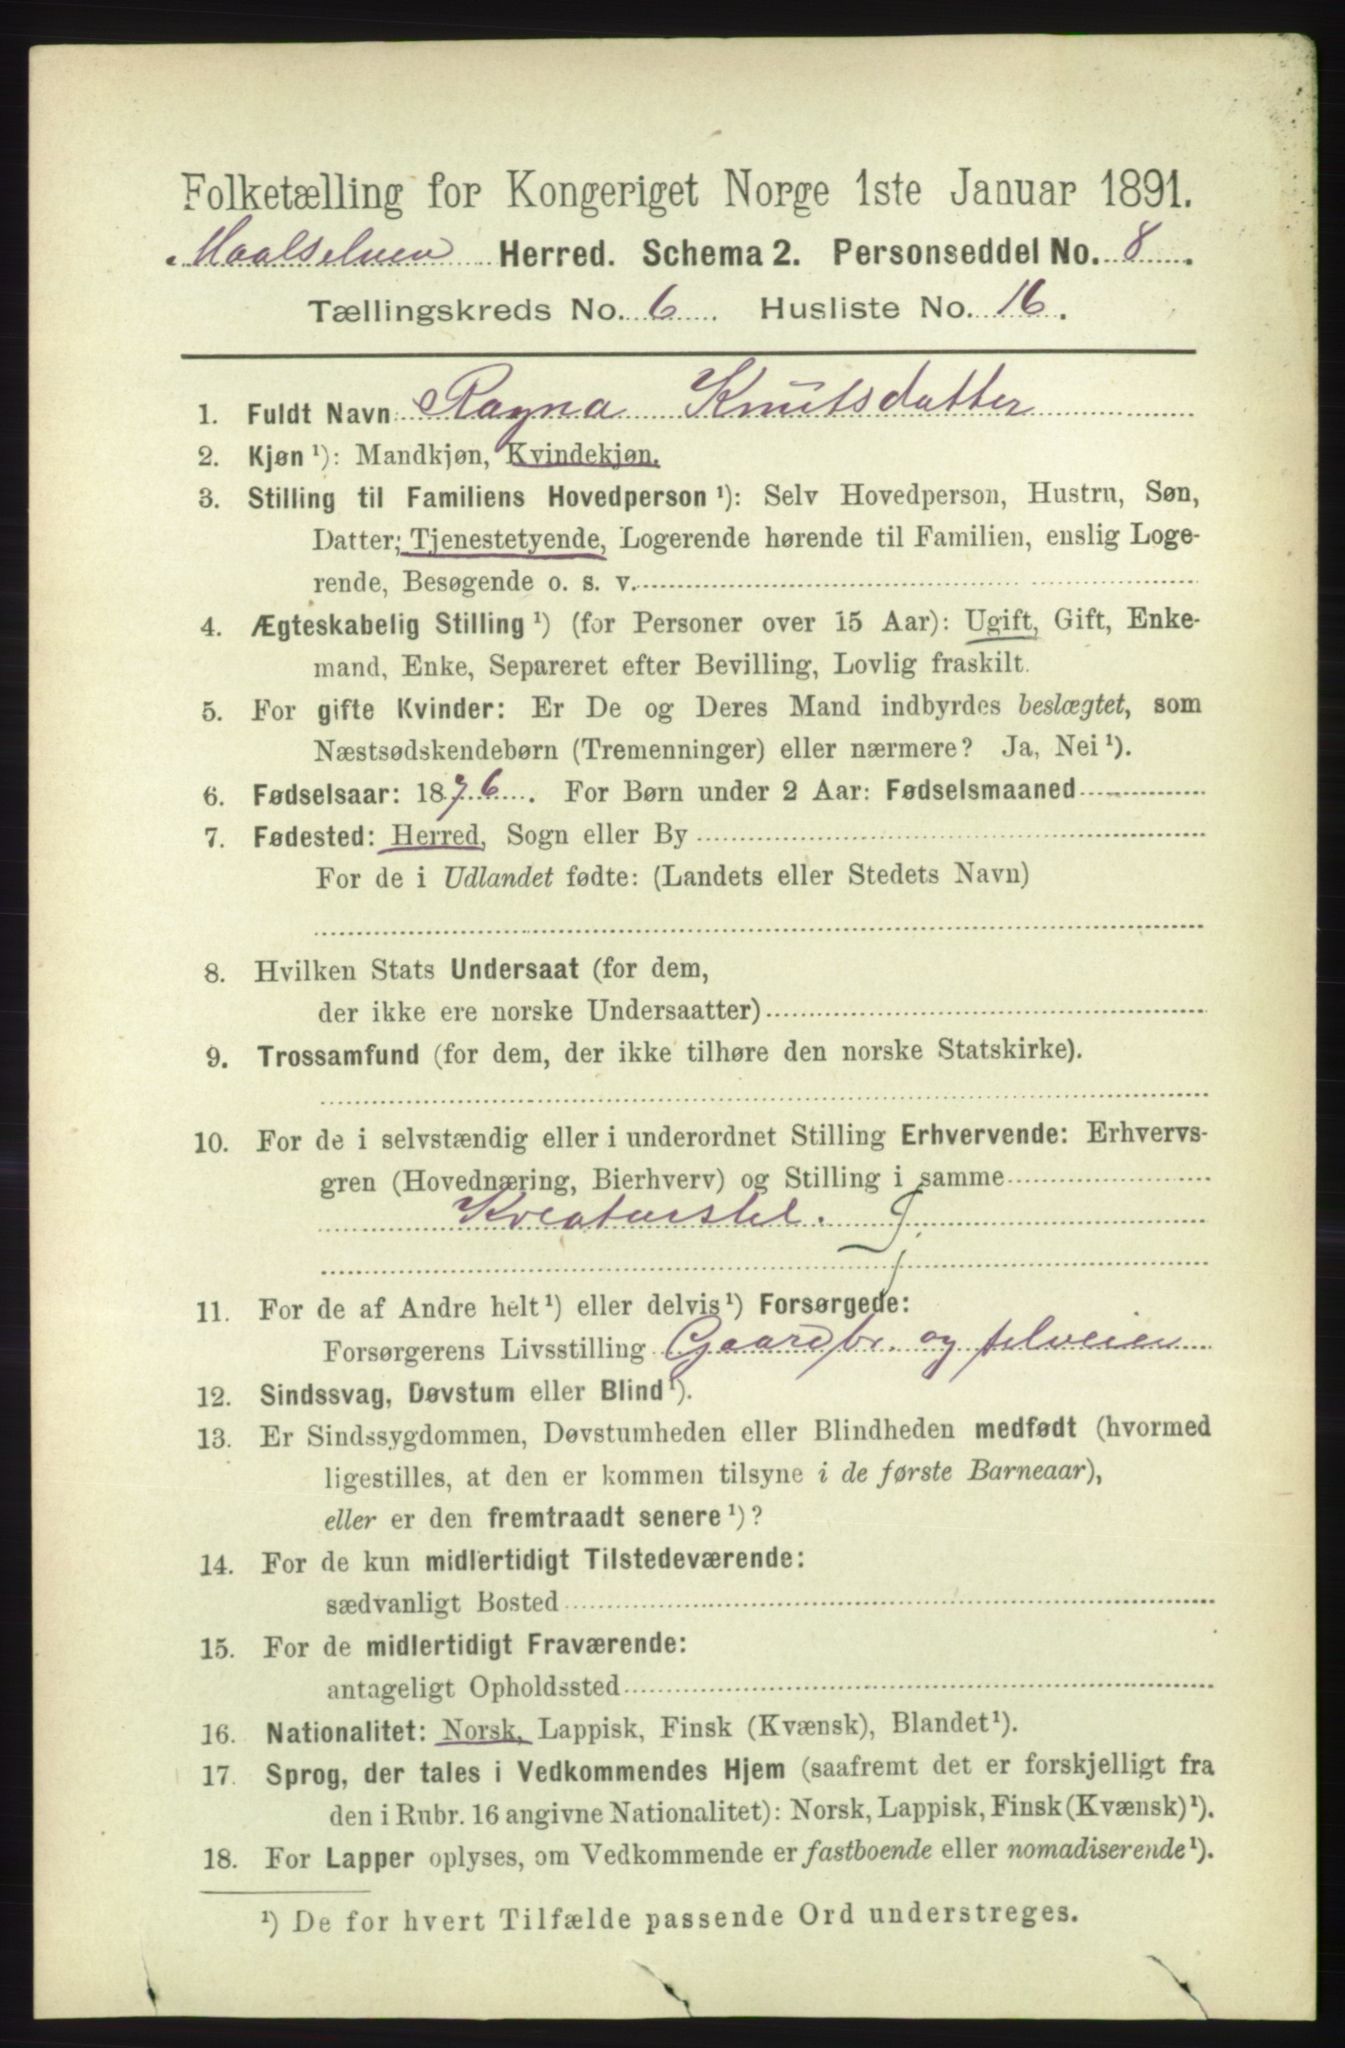 Folketælling for Kongeriget Norge 1ste Januar 1891.
Maalselven Herred. Schema 2. Personseddel No. 8.
Tællingskreds No. 6. Husliste No. 16.
1. Fuldt Navn Ragna Knutsdatter
2. Kjøn ¹): Mandkjøn, Kvindekjøn.
3. Stilling til Familiens Hovedperson ¹): Selv Hovedperson, Hustru, Søn,
Datter, Tjenestetyende, Logerende hørende til Familien, enslig Loge-
rende, Besøgende o. s. v.
4. Ægteskabelig Stilling ¹) (for Personer over 15 Aar): Ugift, Gift, Enke-
mand, Enke, Separeret efter Bevilling, Lovlig fraskilt.
5. For gifte Kvinder: Er De og Deres Mand indbyrdes beslægtet, som
Næstsødskendebørn (Tremenninger) eller nærmere? Ja, Nei ¹).
6. Fødselsaar: 1876. For Børn under 2 Aar: Fødselsmaaned
7. Fødested: Herred, Sogn eller By
For de i Udlandet fødte: (Landets eller Stedets Navn)
8. Hvilken Stats Undersaat (for dem,
der ikke ere norske Undersaatter)
9. Trossamfund (for dem, der ikke tilhøre den norske Statskirke).
10. For de i selvstændig eller i underordnet Stilling Erhvervende: Erhvervs-
gren (Hovednæring, Bierhverv) og Stilling i samme
Kreaturstel.
11. For de af Andre helt ¹) eller delvis ¹) Forsørgede:
Forsørgerens Livsstilling Gaardbr. og selveier
12. Sindssvag, Døvstum eller Blind ¹).
13. Er Sindssygdommen, Døvstumheden eller Blindheden medfødt (hvormed
ligestilles, at den er kommen tilsyne i de første Barneaar),
eller er den fremtraadt senere ¹)?
14. For de kun midlertidigt Tilstedeværende:
sædvanligt Bosted
15. For de midlertidigt Fraværende:
antageligt Opholdssted
16. Nationalitet: Norsk, Lappisk, Finsk (Kvænsk), Blandet ¹).
17. Sprog, der tales i Vedkommendes Hjem (saafremt det er forskjelligt fra
den i Rubr. 16 angivne Nationalitet): Norsk, Lappisk, Finsk (Kvænsk) ¹).
18. For Lapper oplyses, om Vedkommende er fastboende eller nomadiserende ¹).
¹) De for hvert Tilfælde passende Ord understreges.